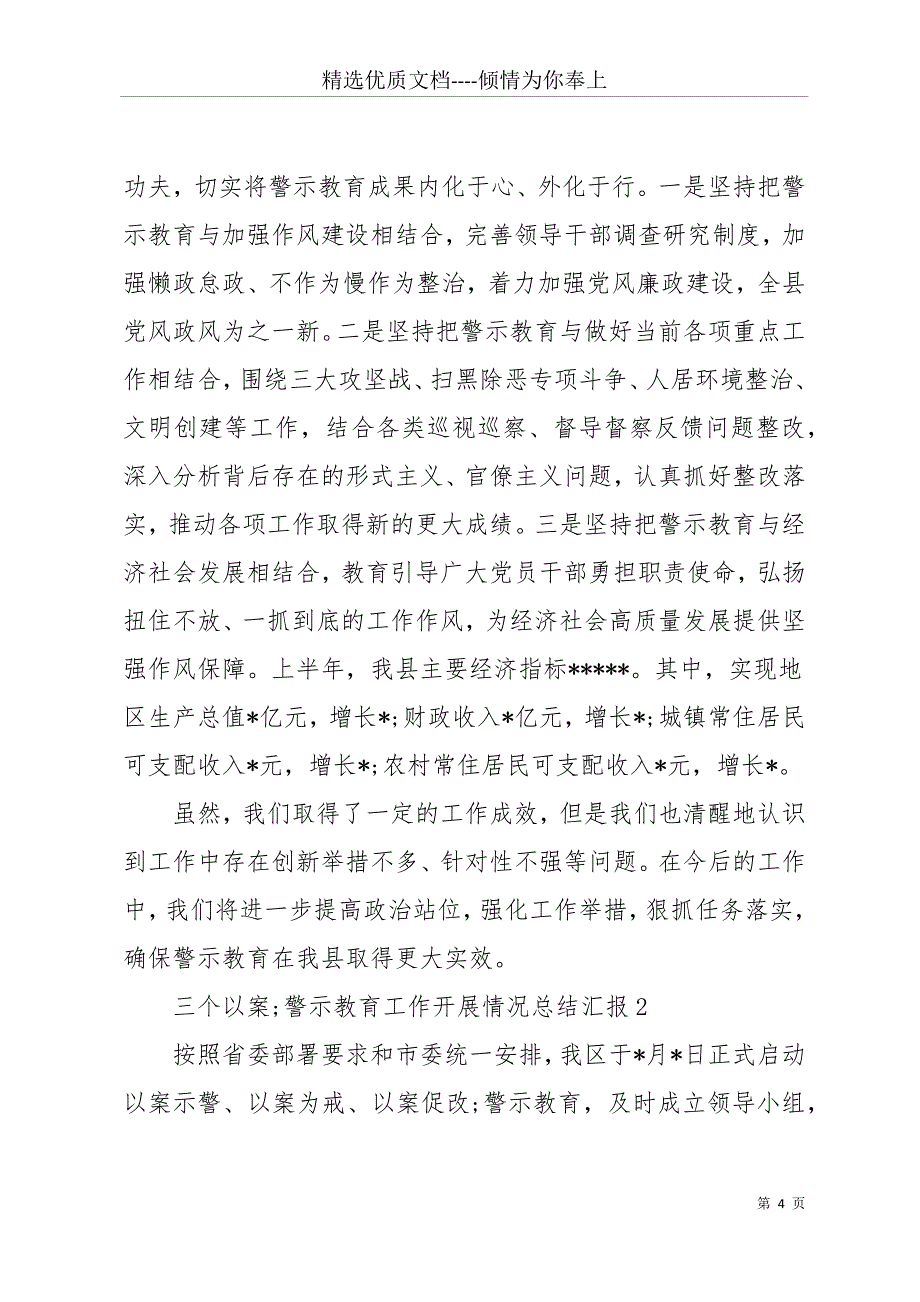 精选优质文档----倾情为你奉上
功夫，切实将警示教育成果内化于心、外化于行。一是坚持把警
示教育与加强作风建设相结合，完善领导干部调查研究制度，加
强懒政怠政、不作为慢作为整治，着力加强党风廉政建设，全县
党风政风为之一新。二是坚持把警示教育与做好当前各项重点工
作相结合，围绕三大攻坚战、扫黑除恶专项斗争、人居环境整治、
文明创建等工作，结合各类巡视巡察、督导督察反馈问题整改，
深入分析背后存在的形式主义、官僚主义问题，认真抓好整改落
实，推动各项工作取得新的更大成绩。三是坚持把警示教育与经
济社会发展相结合，教育引导广大党员干部勇担职责使命，弘扬
扭住不放、一抓到底的工作作风，为经济社会高质量发展提供坚
强作风保障。上半年，我县主要经济指标*****。其中，实现地
区生产总值*亿元，增长*;财政收入*亿元，增长*;城镇常住居民
可支配收入*元，增长*;农村常住居民可支配收入*元，增长*。
虽然，我们取得了一定的工作成效，但是我们也清醒地认识
到工作中存在创新举措不多、针对性不强等问题。在今后的工作
中，我们将进一步提高政治站位，强化工作举措，狠抓任务落实，
确保警示教育在我县取得更大实效。
三个以案;警示教育工作开展情况总结汇报2
按照省委部署要求和市委统一安排，我区于*月*日正式启动
以案示警、以案为戒、以案促改;警示教育，及时成立领导小组，
第 4 页